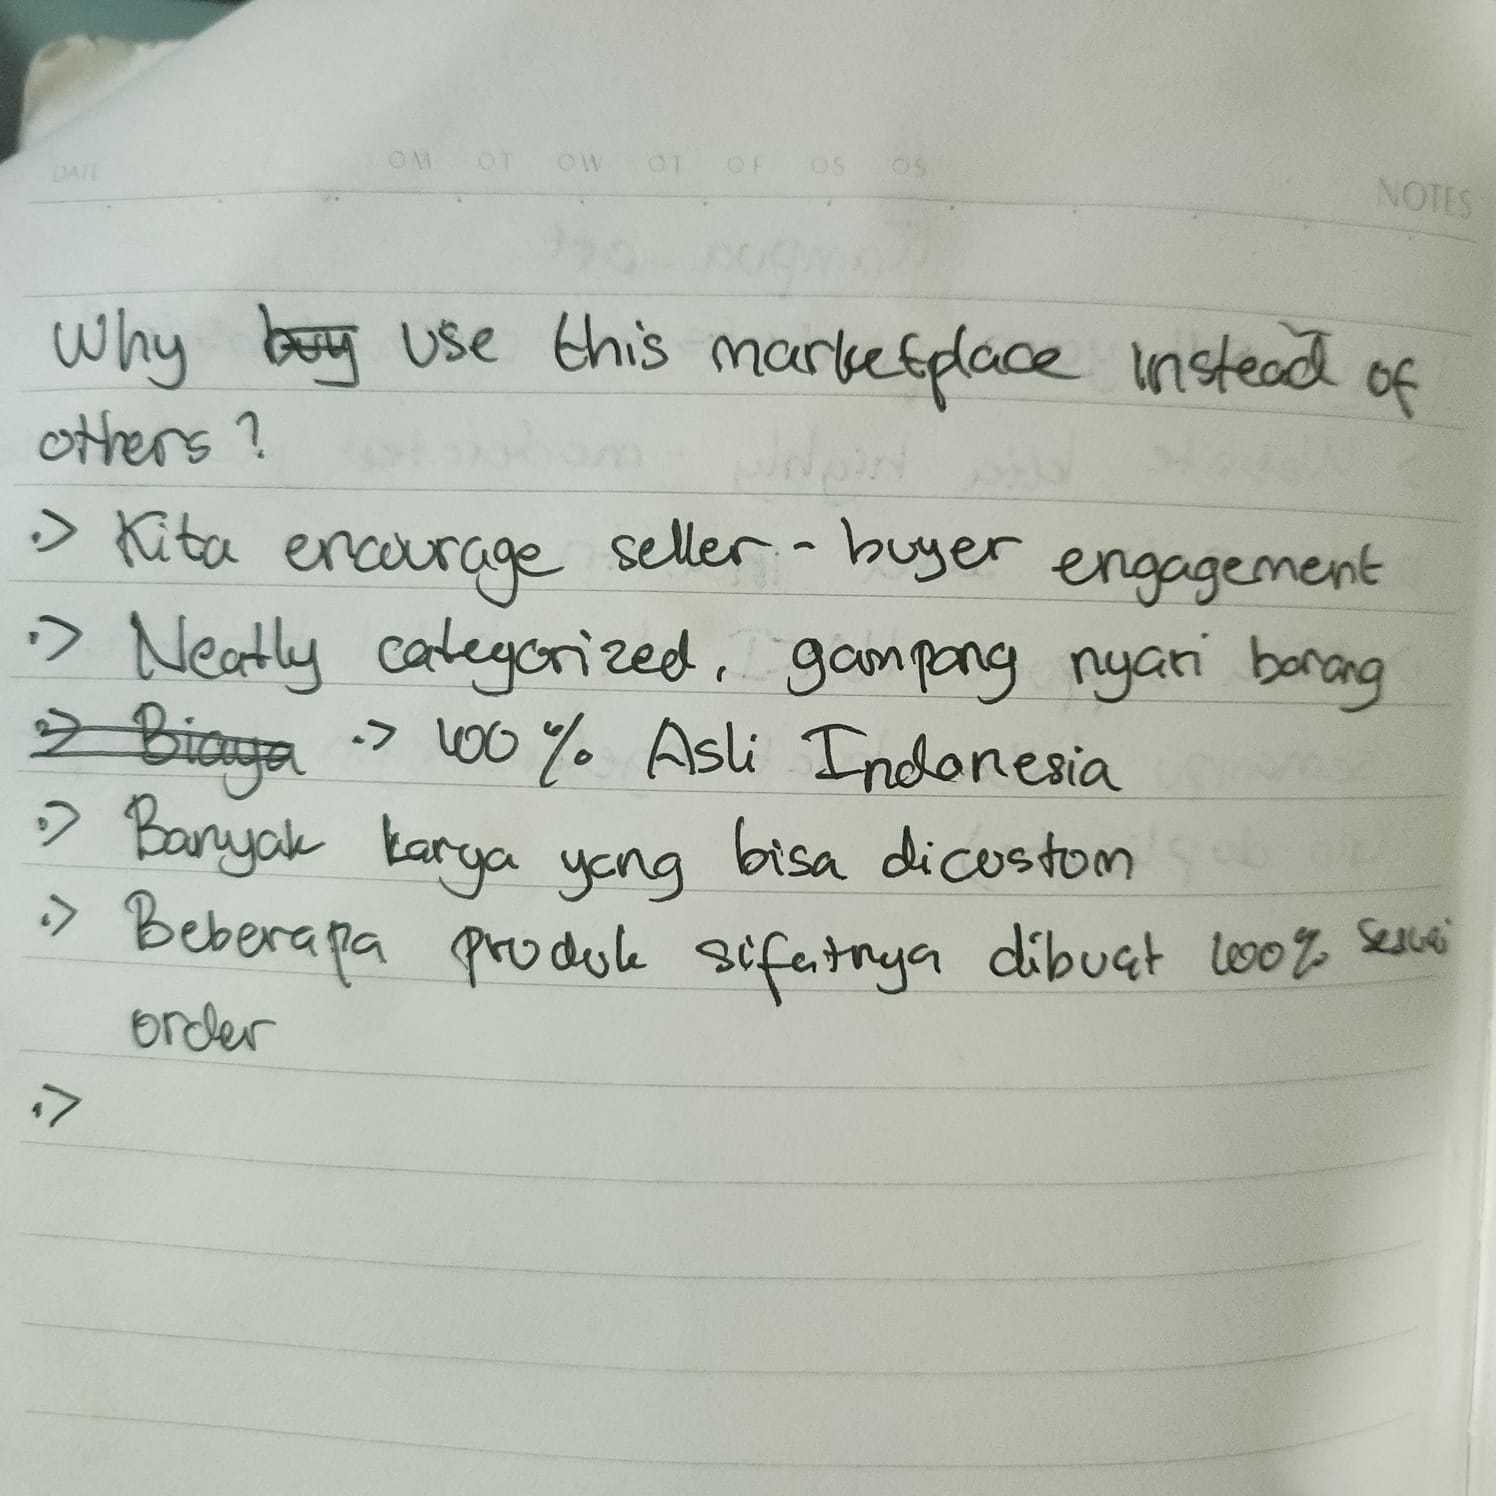 DATE OM OT OW OT OF OS OS NOTES
Why buy use this marketplace instead of
others?
.> Kita encourage seller - buyer engagement
.> Neatly categorized, gampang nyari barang
.> Biaya .> 100% Asli Indonesia
.> Banyak karya yang bisa dicustom
.> Beberapa produk sifatnya dibuat 100% sesuai
order
.>